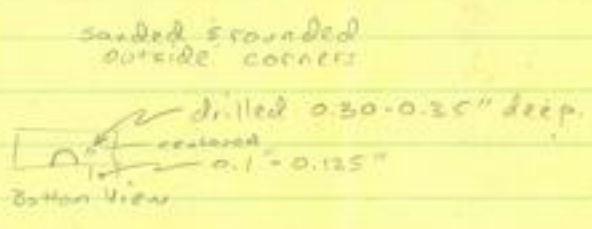 sanded & rounded
outside corners
drilled 0.30-0.35" deep.
centered
0.1"-0.125"
Bottom View